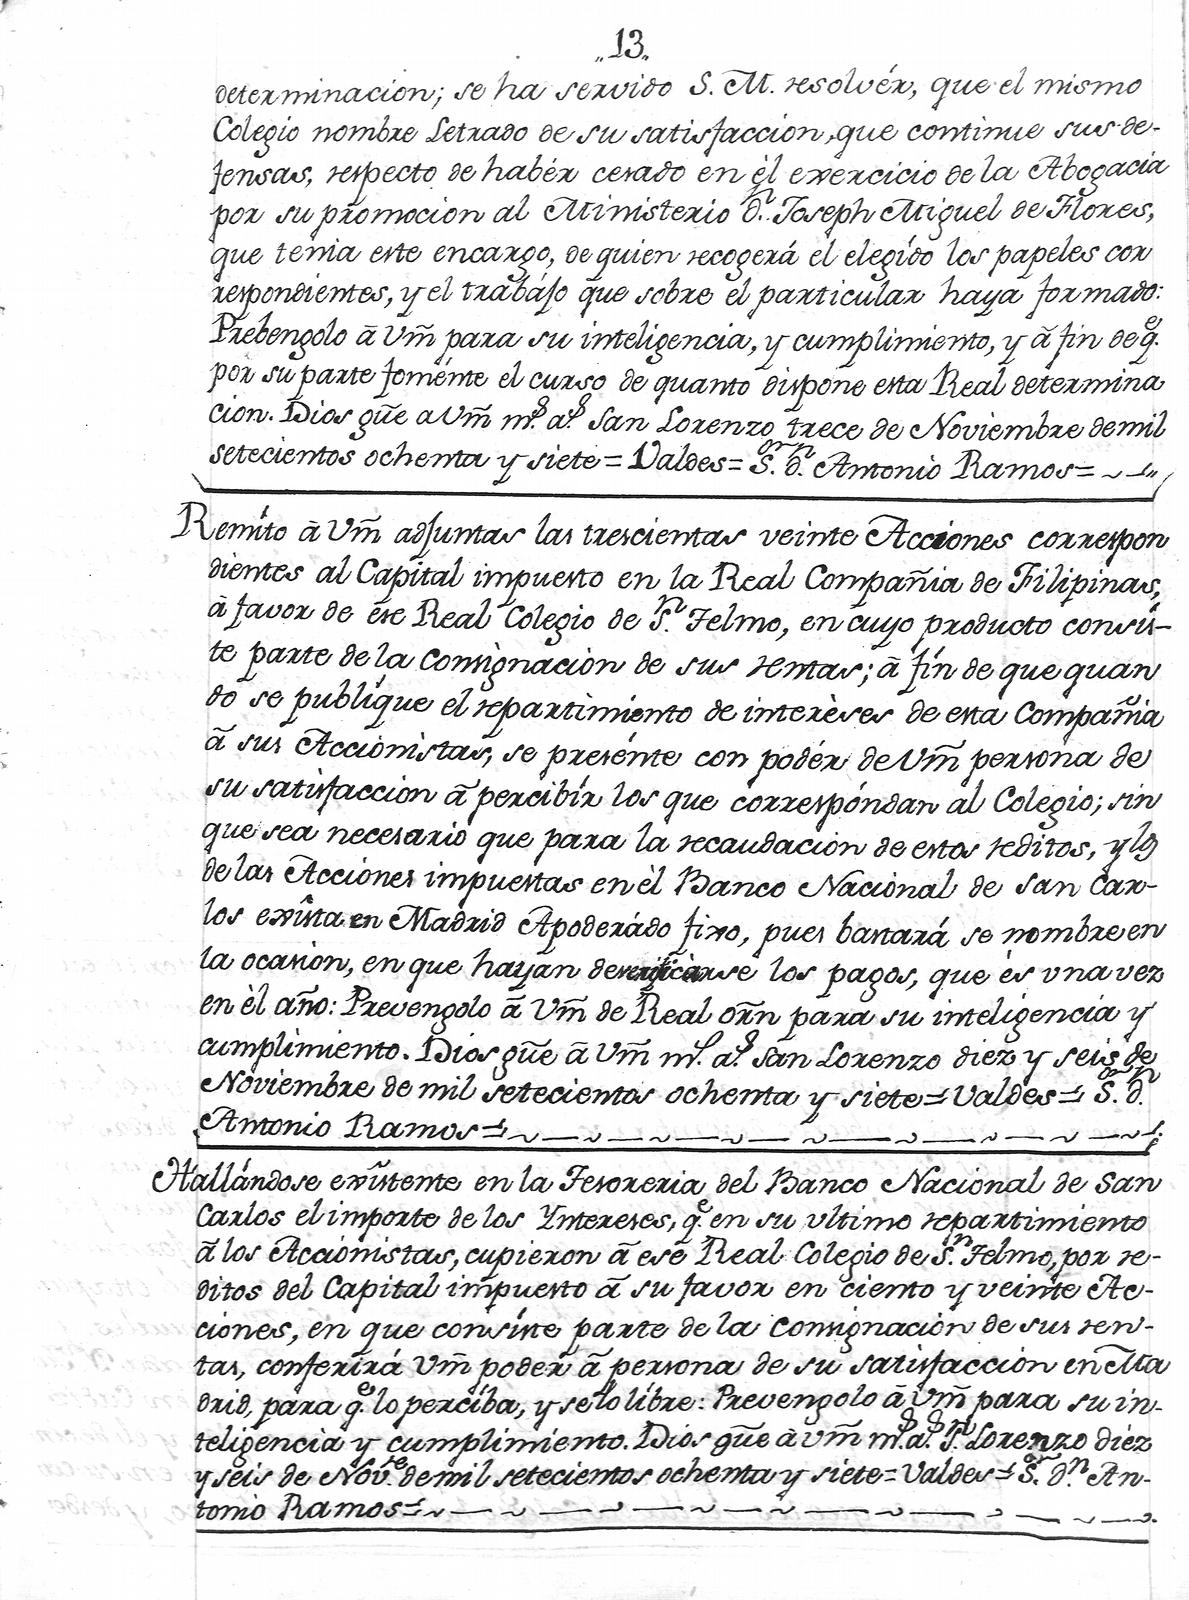 „13„
determinacion; se ha servido S. M. resolvér, que el mismo
Colegio nombre Letrado de su satisfaccion, que continue sus de-
fensas, respecto de habér cesado en él exercicio de la Abogacia
por su promocion al Ministerio d.n Joseph Miguel de Flores,
que tenia este encargo, de quien recogerá él elegído los papeles cor
respondientes, y el trabájo que sobre el particular haya formado:
Prebengolo ā Vm̃ para su inteligencia, y cumplimiento, y ā fin de q.e
por su parte foménte el curso de quanto dispone esta Real determina
cion. Dios gũe a Vm̃ m.s a.s San Lorenzo trece de Noviembre de mil
setecientos ochenta y siete = Valdes = S.or d.n Antonio Ramos =
Remíto ā Vm̃ adjuntas las trescientas veinte Acciones correspon
dientes al Capital impuesto en la Real Compañia de Filipinas,
ā favor de ese Real Colegio de S.n Telmo, en cuyo producto consis-
te parte de la Consignacion de sus rentas; ā fin de que quan
do se publíque el repartimiento de interèses de esta Compañia
ā sus Accionistas, se presénte con podér de Vm̃ persona de
su satisfaccion ā percibír los que correspóndan al Colegio; sin
que sea necesario que para la recaudacion de estos reditos, y los
de las Acciones impuestas en èl Banco Nacional de San Car-
los exîsta en Madrid Apoderádo fixo, pues bastará se nombre en
la ocasion, en que hayan de verificarse los pagos, que ès una vez
en èl año: Prevengolo ā Vm̃ de Real orñ para su inteligencia y
cumplimiento. Dios gũe ā Vm̃ m.s a.s San Lorenzo diez y seis de
Noviembre de mil setecientos ochenta y siete = Valdes = S.or d.n
Antonio Ramos =
Hallándose exîstente en la Tesoreria del Banco Nacional de San
Carlos el importe de los Yntereses, q.e en su ultimo repartimiento
ā los Accionistas, cupieron ā ese Real Colegio de S.n Telmo, por re-
ditos del Capital impuesto ā su favor en ciento y veinte Ac-
ciones, en que consiste parte de la Consignacion de sus ren-
tas, conferirá Vm̃ poder ā persona de su satisfaccion en Ma
drid, para q.e lo percíba, y se lo líbre: Prevengolo ā Vm̃ para su in-
teligencia y cumplimiento. Dios gũe à Vm̃ m.s a.s S.n Lorenzo diez
y seis de Nov.re de mil setecientos ochenta y siete = Valdes = S.or d.n An-
tonio Ramos =